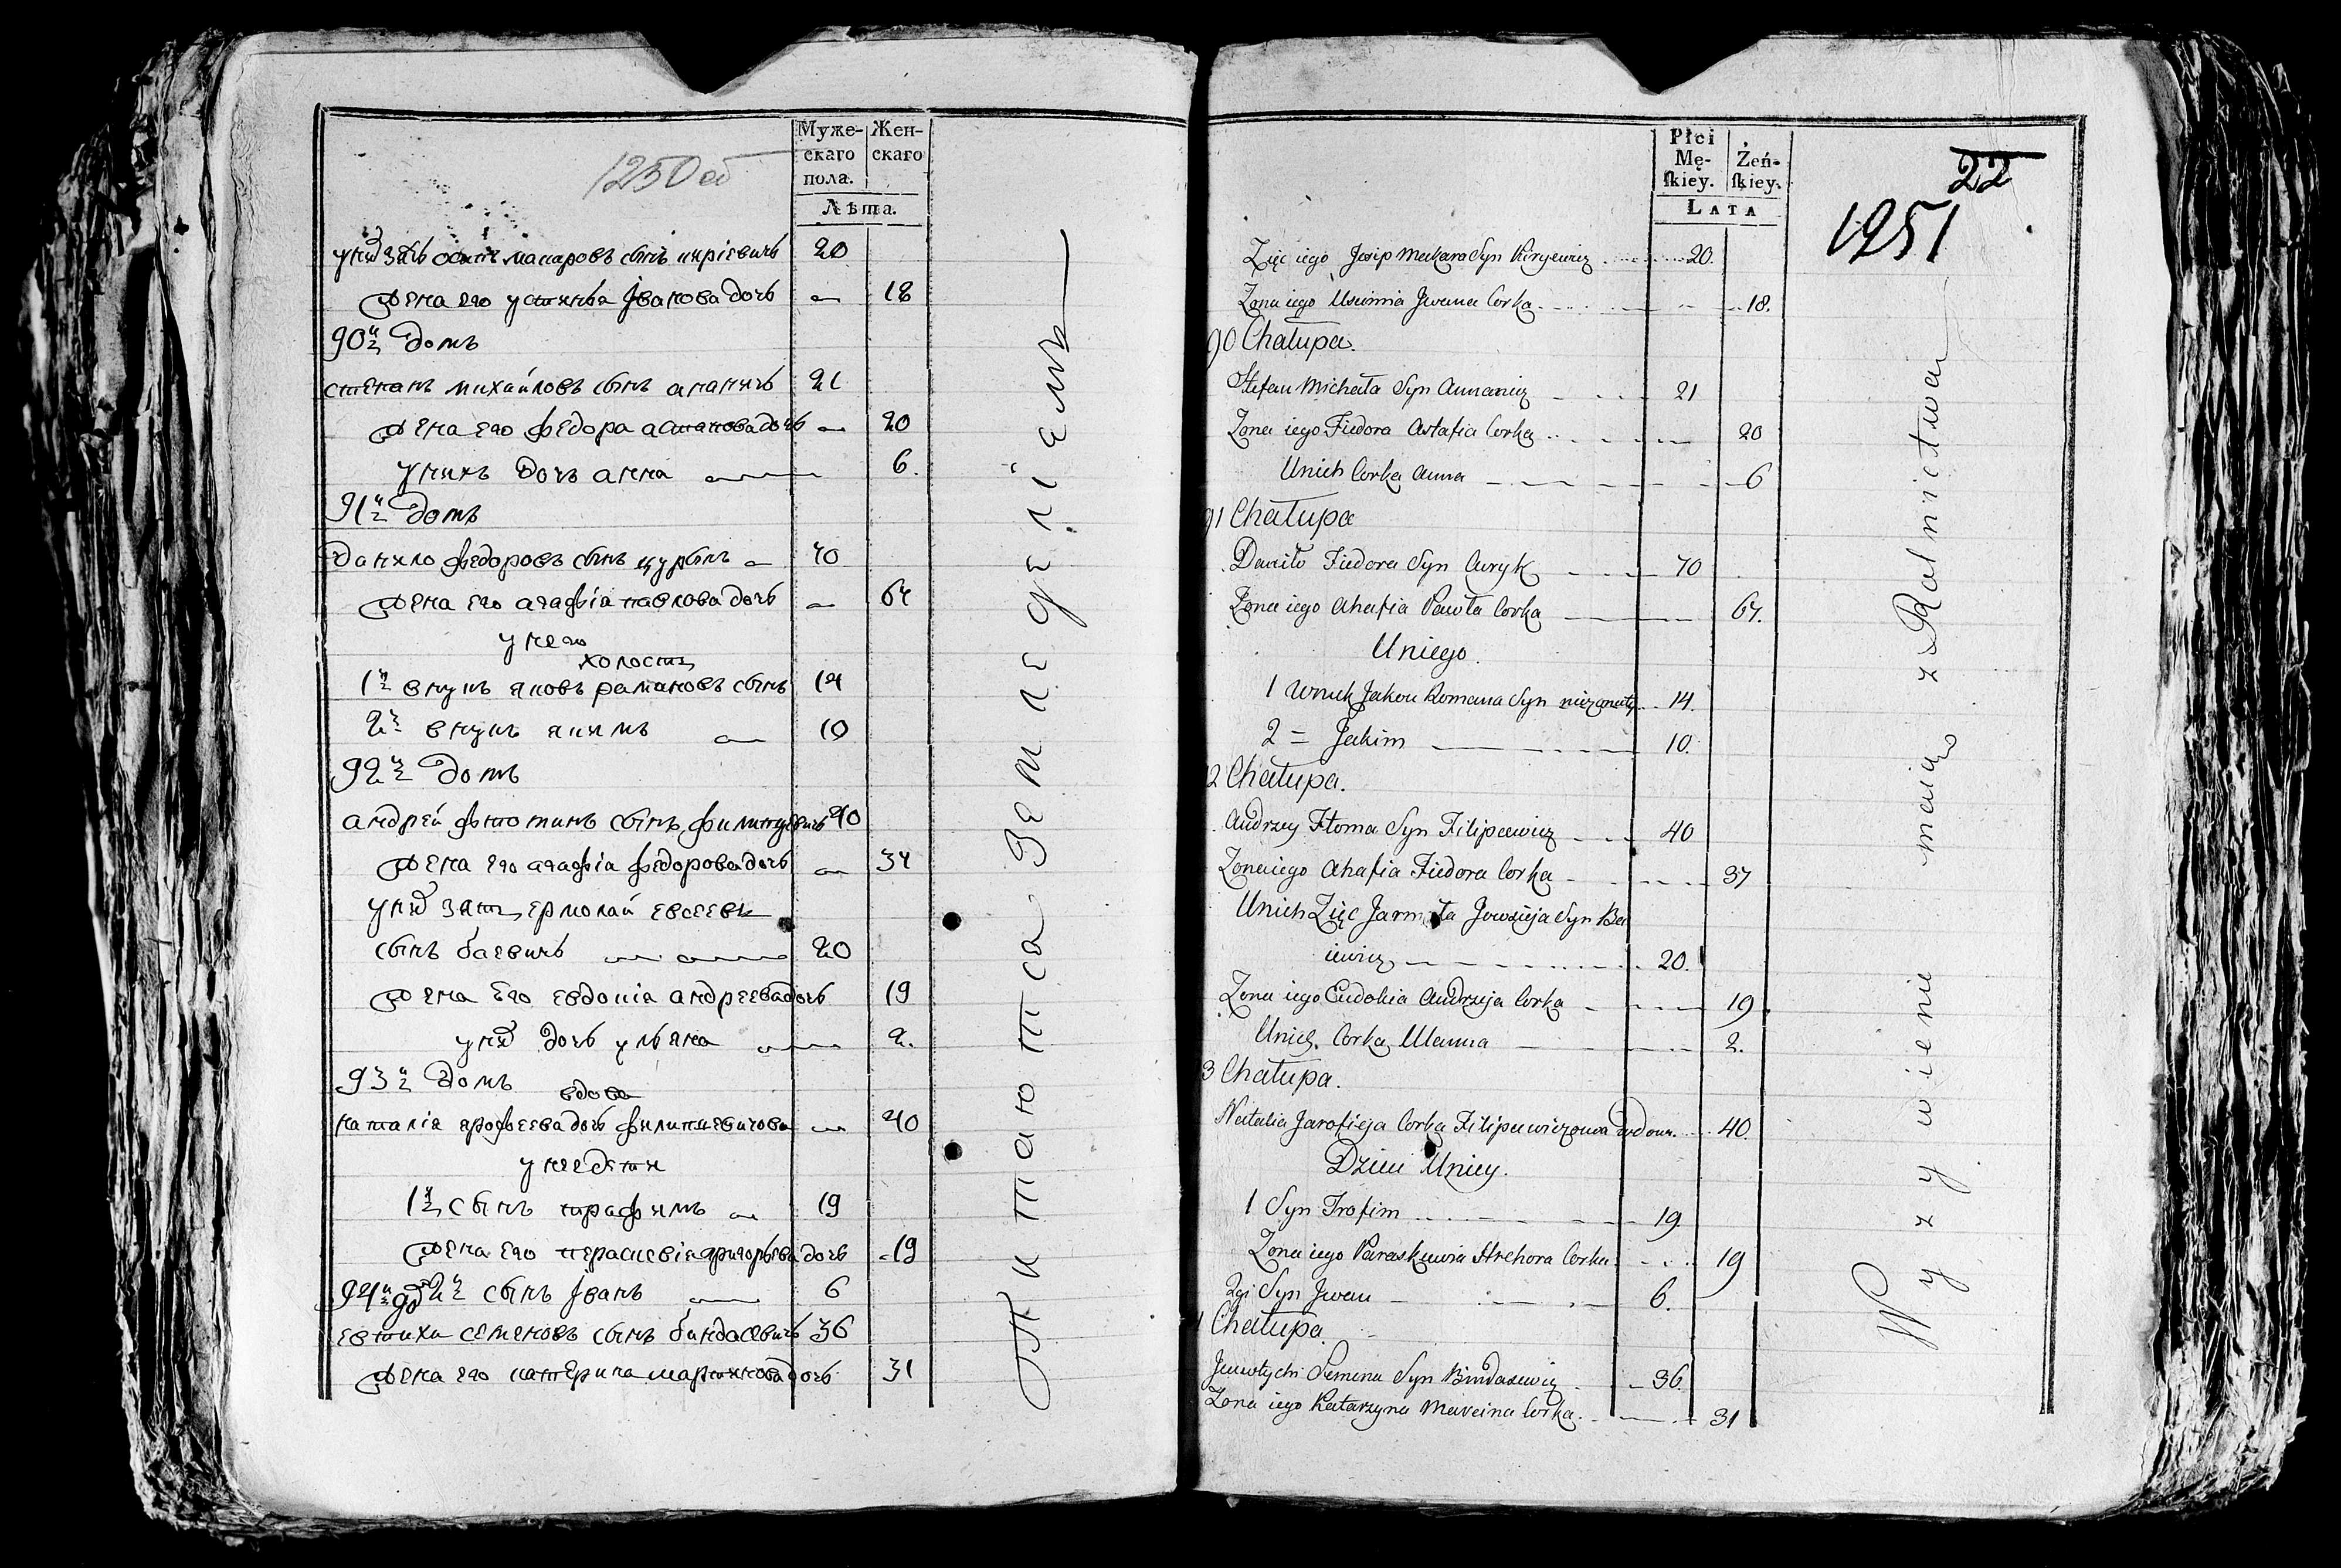 1250об
Муже-
скаго
пола.
Жен-
скаго
Лѣта.
у них зять осипъ макаровъ сынъ кирiевичь 20
жена его устинья Iванова дочь — 18
90й домъ
степанъ михайловъ сынъ ананичь 21
жена его федора астапова дочь — 20
у нихъ дочь анна — 6.
91й домъ
данило федоровъ сынъ цурыкъ — 70
жена его агафiя павлова дочь — 67
у него
холостъ
1й внукъ яковъ романовъ сынъ 14
2й внукъ якимъ — 10
92й домъ
андрей фтоминъ сынъ филипцевичь 40
жена его агафiя федорова дочь — 37
у них зять ермолай евсеевъ
сынъ баевичь — 20
жена его евдокiя андреева дочь 19
у них дочь ульяна — 2.
93й домъ
вдова
наталiя ярофеева дочь филипцевичова — 40
у нее дѣти
1й сынъ трафимъ — 19
жена его пераскевiя григорьева дочь 19
94й до 2й сынъ Iванъ — 6
евтихи семеновъ сынъ биндасевичь 36
жена его катерина мартинова дочь 31
Питаются земледѣлiемъ
Płci
Mę-
ſkiey.
Żeń-
ſkiey.
LATA
22
1251
Zięc iego Josip Makara Syn Kiryewicz 20.
Zona iego Usciniia Jwana Corka 18.
90 Chałupa.
Stefan Michała Syn Ananicz 21
Zona iego Fiedora Astafia Corka 20
Unich Corka Anna 6
91 Chałupa
Daniło Fiedora Syn Curyk 70
Zona iego Ahafia Pawła Corka 67.
Uniego.
1 Wnuk Jakou Romana Syn niezonaty 14.
2 = Jakim 10.
2 Chałupa.
Andrzey Ftoma Syn Filipcewicz 40
Zona iego Ahafia Fiedora Corka 37
Unich Zięc Jarmoła Jewsieja Syn Ba
iewicz 20.
Zona iego Eudokia Andrzeja Corka 19.
Unich Corka Ulanna 2.
3 Chałupa.
Natalia Jarofieja Corka Filipcewiczowa wdowa 40.
Dzieci Uniey.
1 Syn Trofim 19.
Zona iego Paraskiewia Hrehora Corka 19
2gi Syn Jwan 6.
Chałupa.
Jewtychi Siemiena Syn Bindasewicz 36.
Zona iego Katarzyna Marcina Corka. 31
Wyzywienie maią z Rolnictwa